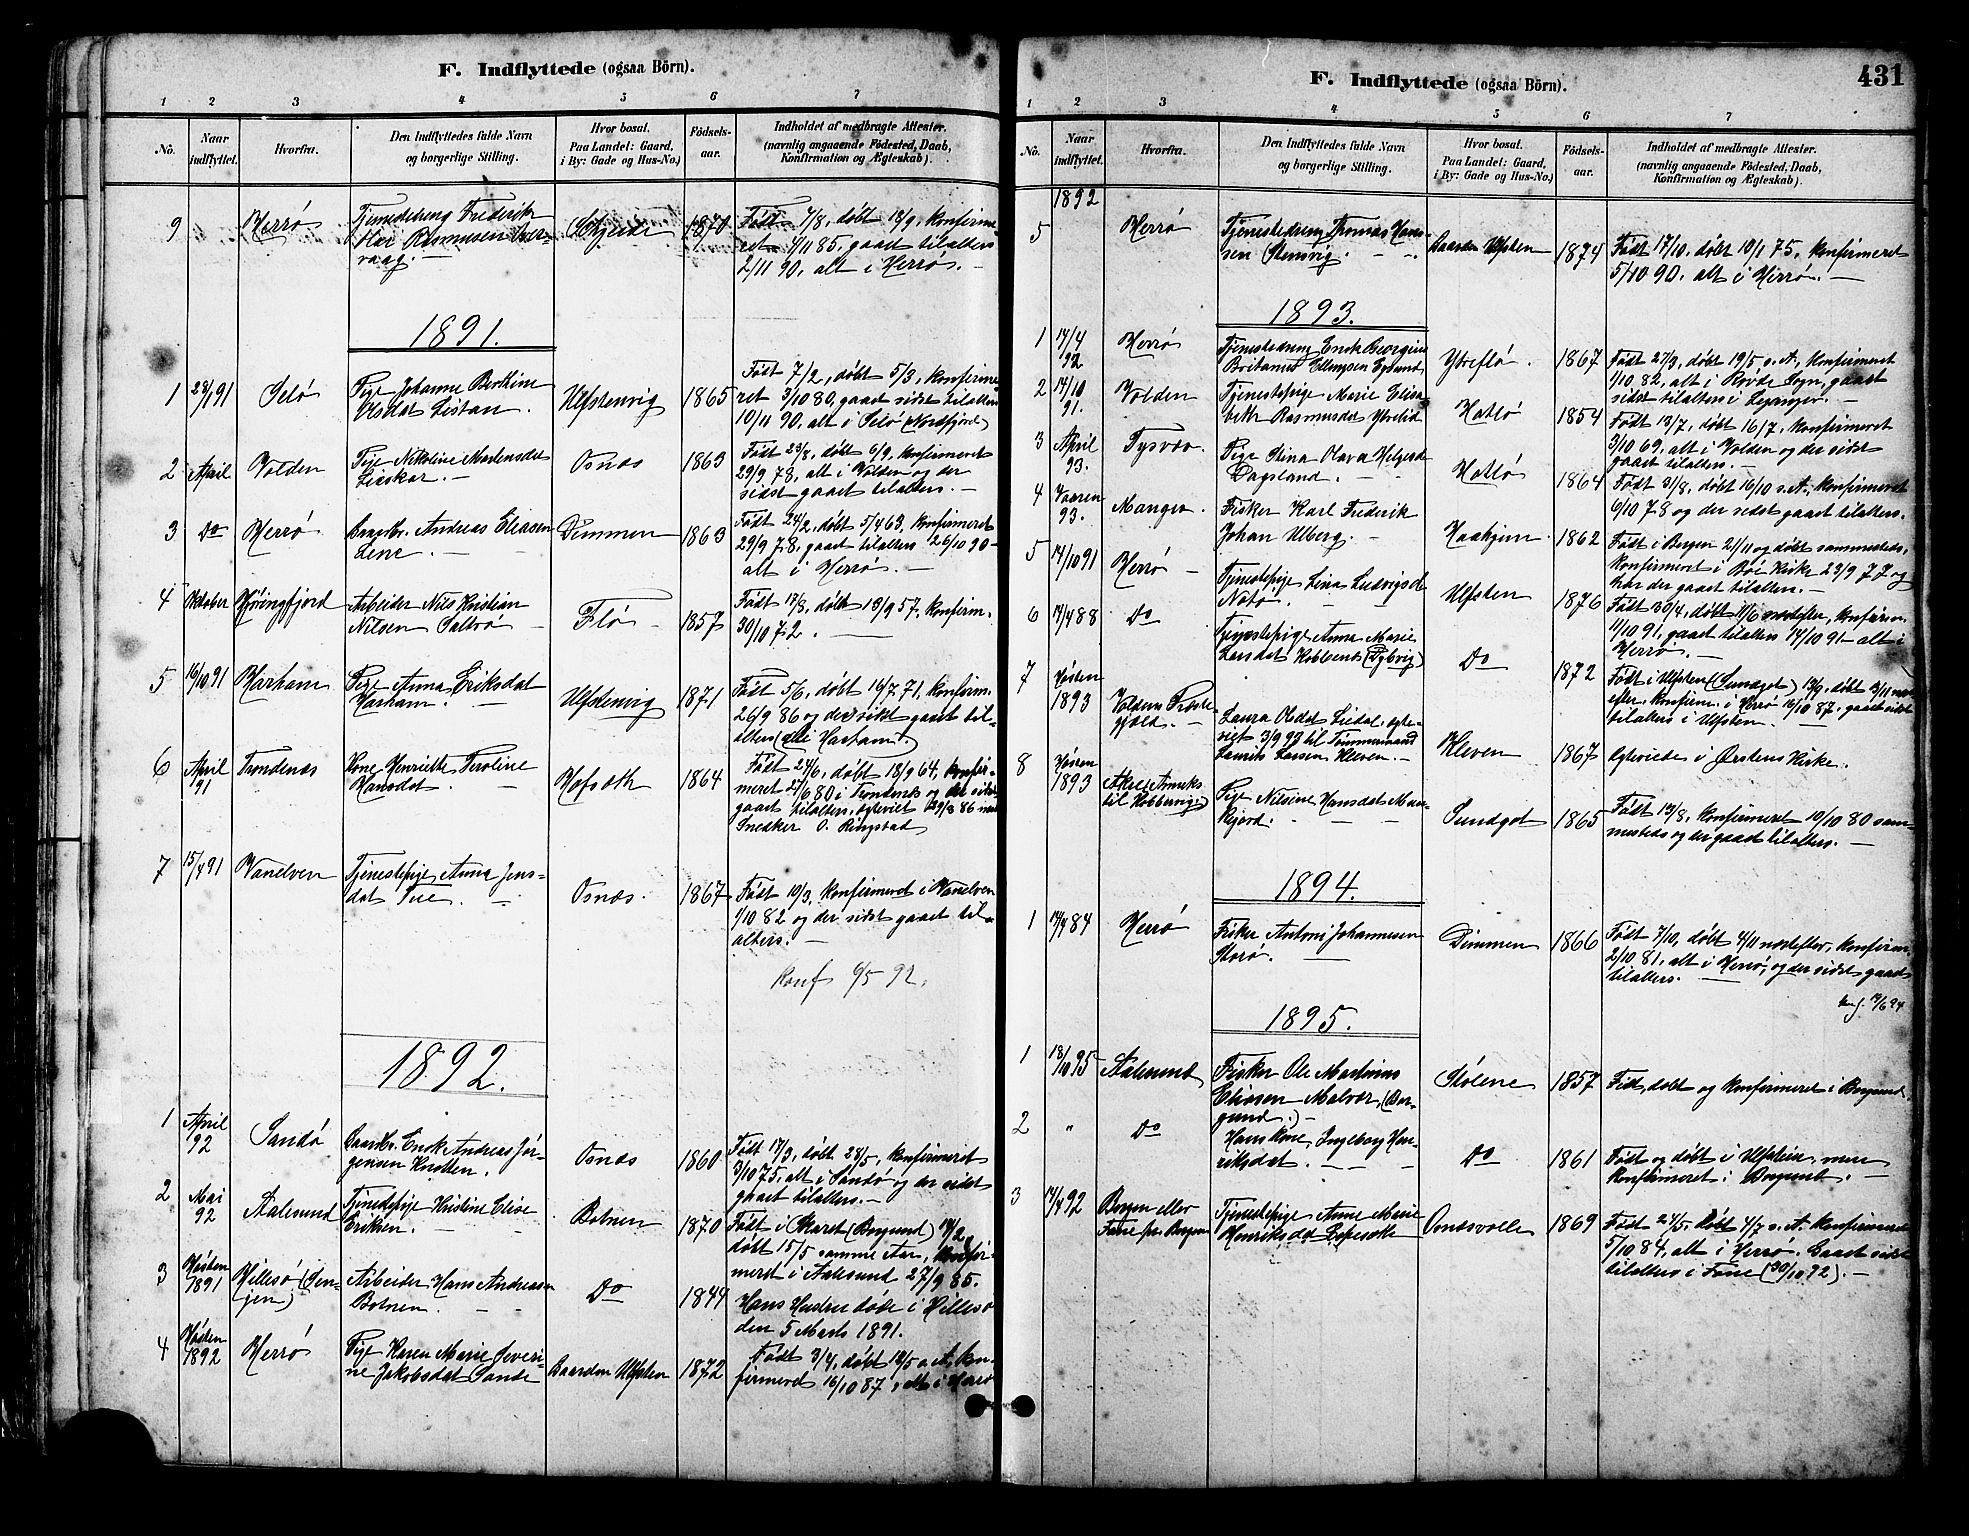 F. Indflyttede (ogsaa Börn).
1 2 3 4 5 6 7
No.
Naar indflyttet.
Hvorfra.
Den Indflyttedes fulde Navn
og borgerlige Stilling.
Hvor bosat.
Paa Landet: Gaard,
i By: Gade og Hus-No.)
Födsels-
aar.
Indholdet af medbragte Attester.
(navnlig angaaende Födested, Daab,
Konfirmation og Ægteskab).
9 Herrø Tjenestedreng Frederik
Rasmusen
vaag. —
1870 Født 7/8, døbt 18/9, konfirme-
ret 1/11 85, gaaet tilalters
2/11 90, alt i Herrø. —
1891.
1 28/1 91 Selø Pige Johanne Berthine
Olsdat Listau. Ulfstenvig 1865
Født 7/2, døbt 5/3, konfirme-
ret 3/10 80, gaaet sidst tilalters
10/11 90, alt i Selø (Nordfjord)
2 April Volden Pige Nikoline Martensdat
Osnæs 1863
Født 23/8, døbt 6/9, konfirmeret
29/9 78, alt i Volden og der
sidst gaaet tilalters. —
3 Do Herrø Andreas Eliasen
Lene. — Dimmen 1863
Født 24/2, døbt 5/4 63, konfirmeret
29/9 78, gaaet tilalters 26/10 90 —
alt i Herrø. —
4 Oktober Hjøringfjord Arbeider Nils Kristian
Nilsen Fløi 1857
Født 17/8, døbt 13/9 57, konfirm.
30/10 72. —
5 16/10 91 Harham Pige Anna Eriksdat
Harham. Ulfstenvig 1871
Født 5/6, døbt 16/7 71, konfirm.
26/9 86 og der sidst gaaet til-
alters (alt i Harham).
6 April 91 Trondenæs Kone Henriette Peroline
Hansdat. Hofsæth 1864
Født 24/6, døbt 18/9 64, konfir-
meret 27/6 80 i Trondenæs og der sidst
gaaet tilalters, ægteviet 29/8 86 med
Snedker O. Ringstad
7 15/4 91 Vanelven Tjenestepige Anna Jens-
dat Tue. Osnæs. 1867
Født 10/3, konfirmeret i Vanelven
1/10 82 og der sidst gaaet til-
alters. —
Konf 6/5 92.
1892.
1 April 92 Sandø Enok Andreas Jør-
gensen Knotten. Osnæs 1860
Født 17/3, døbt 28/5, konfirmeret
3/10 75, alt i Sandø og der sidst
gaaet tilalters. —
2 Mai 92 Aalesund Tjenestepige Kristine Elise
Eriksen. Botnen 1870
Født i Skaret (Borgund)
døbt 15/5 samme Aar, konfir-
meret i Aalesund 27/9 85.
3 Høsten 1891 Hillesø (Sen-
jen) Arbeider Hans Andreasen
Botnen. Do 1844
Hans Hustru døde i Hillesø
den 5 Marts 1891.
4 Høsten 1892 Herrø Pige Karen Marie Severi-
ne Jakobsdat Sande Gaarden Ulfsten 1872
Født 3/4, døbt 12/5 s. A, kon-
firmeret 16/10 87, alt i Herrø
F. Indflyttede (ogsaa Börn).
431
1 2 3 4 5 6 7
No.
Naar indflyttet.
Hvorfra.
Den Indflyttedes fulde Navn
og borgerlige Stilling.
Hvor bosat.
Paa Landet: Gaard,
i By: Gade og Hus-No.)
Födsels-
aar.
Indholdet af medbragte Attester.
(navnlig angaaende Födested, Daab,
Konfirmation og Ægteskab).
1892
5 Herrø Tjenestedreng Thomas Han-
sen Stensvig. Gaarden Ulfsten 1874
Født 17/10, døbt 10/1 75, konfirmeret
5/10 90, alt i Herrø. —
1893.
1 17/4 92 Herrø Tjenestedreng Enok Georgius
Britanus Ellingsen Eglund Ytrefló 1867
Født 27/3, døbt 19/5 s. A, konfirmeret
1/10 82, alt i Rovde Sogn, gaaet
sidst tilalters i
2 14/10 91. Volden Tjenestepige Marie Elisa-
beth Rasmusdat Hatlø 1854
Født 13/7, døbt 16/7, konfirmeret
3/10 69, alt i Volden og der sidst
gaaet tilalters. —
3 April 93. Tysvær. Pige Stina Olava Helgesd
Dagsland. Hatlø 1864
Født 31/8, døbt 16/10 s. A., konfirmeret
6/10 78 og der sidst gaaet tilalters.
4 Vaaren 93. Manger. Fisker Karl Frederik
Johan Ulberg. Haahjem. 1862
Født i Bergen 21/11 og døbt sammesteds,
konfirmeret i Bøe Kirke 23/9 77 og
har der gaaet tilalters. —
5 14/10 91 Herrø Tjenestepige Lina Ludvigsd.
Notø. Ulfsten 1876
Født 30/4, døbt 11/6 næstefter, konfirm.
11/10 91, gaaet tilalters 14/10 91 — alt i
Herrø. —
6 14/4 88 Do Tjenestepige Anna Marie
Larsdat Kobbenes (Dybvig) Do 1872
Født i Ulfsten (Sundgot) 13/9, døbt 3/11 næst
efter, konfirm. i Herrø 16/10 87, gaaet sidst
tilalters i Ulfsten. —
7 Høsten 1893 Voldens Præste-
gjæld. — Laura Olsdat Liedal, ægte-
viet 3/9 93 til Tømmermand
Laurits Larsen Kleven. — Kleven 1867
Ægteviede i Ørstens Kirke.
8 Høsten 1893 til Kobbervig) Pige Nilsine Hansdat
Sundgot 1865
Født 13/8, konfirmeret 10/10 80 sam-
mesteds og der gaaet tilalters. —
1894.
1 14/4 84 Herrø Fisker Antoni Johannesen
Storø. Dimmen 1866
Født 7/10, døbt 4/11 næstefter, konfirm.
2/10 81, alt i Herrø, og der sidst gaaet
tilalters.
1895.
1 18/10 95 Aalesund Fisker Ole Martinus
Eliasen Malvær, (Bor-
gund.) — Stølene 1857
Født, døbt og konfirmeret i Borgund.
2 " Do Hans Kone, Ingeborg Hen-
riksdat. Do 1861
Født og døbt i Ulfsten, men
konfirmeret i Borgund. —
3 14/4 92 Bergen eller
Fane pr. Bergen Tjenestepige Anne Marie
Henriksdat 1869
Født 24/5, døbt 4/7 s. A. konfirmeret
5/10 84, alt i Herrø. Gaaet sidst
tilalters i Fane (30/10 92). —